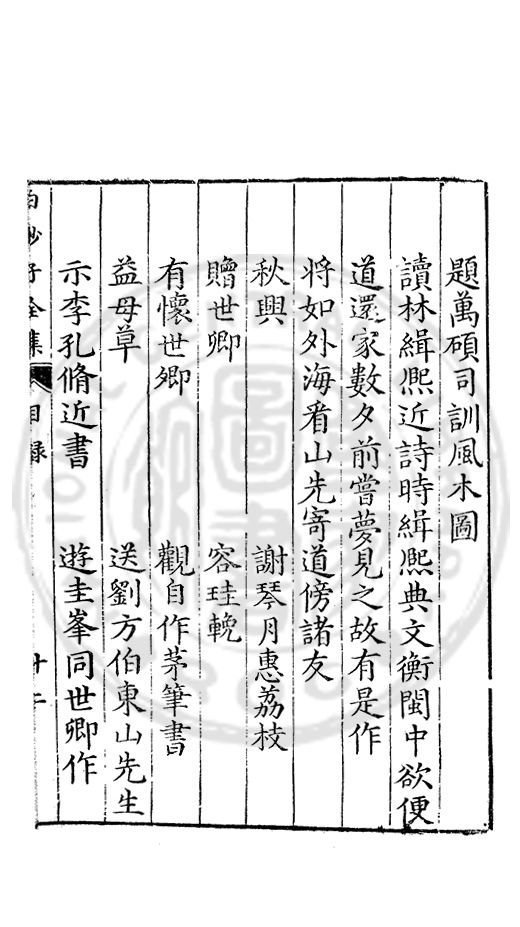 題萬碩司訓風木圖
讀林緝熙近詩時緝熙典文衡閩中欲便
道還家數夕前嘗夢見之故有是作
將如外海看山先寄道傍諸友
秋興 謝琴月惠荔枝
贈世卿 容珪輓
有懷世卿 觀自作茅筆書
益母草 送劉方伯東山先生
示李孔脩近書 遊圭峯同世卿作
白沙子全集 目録